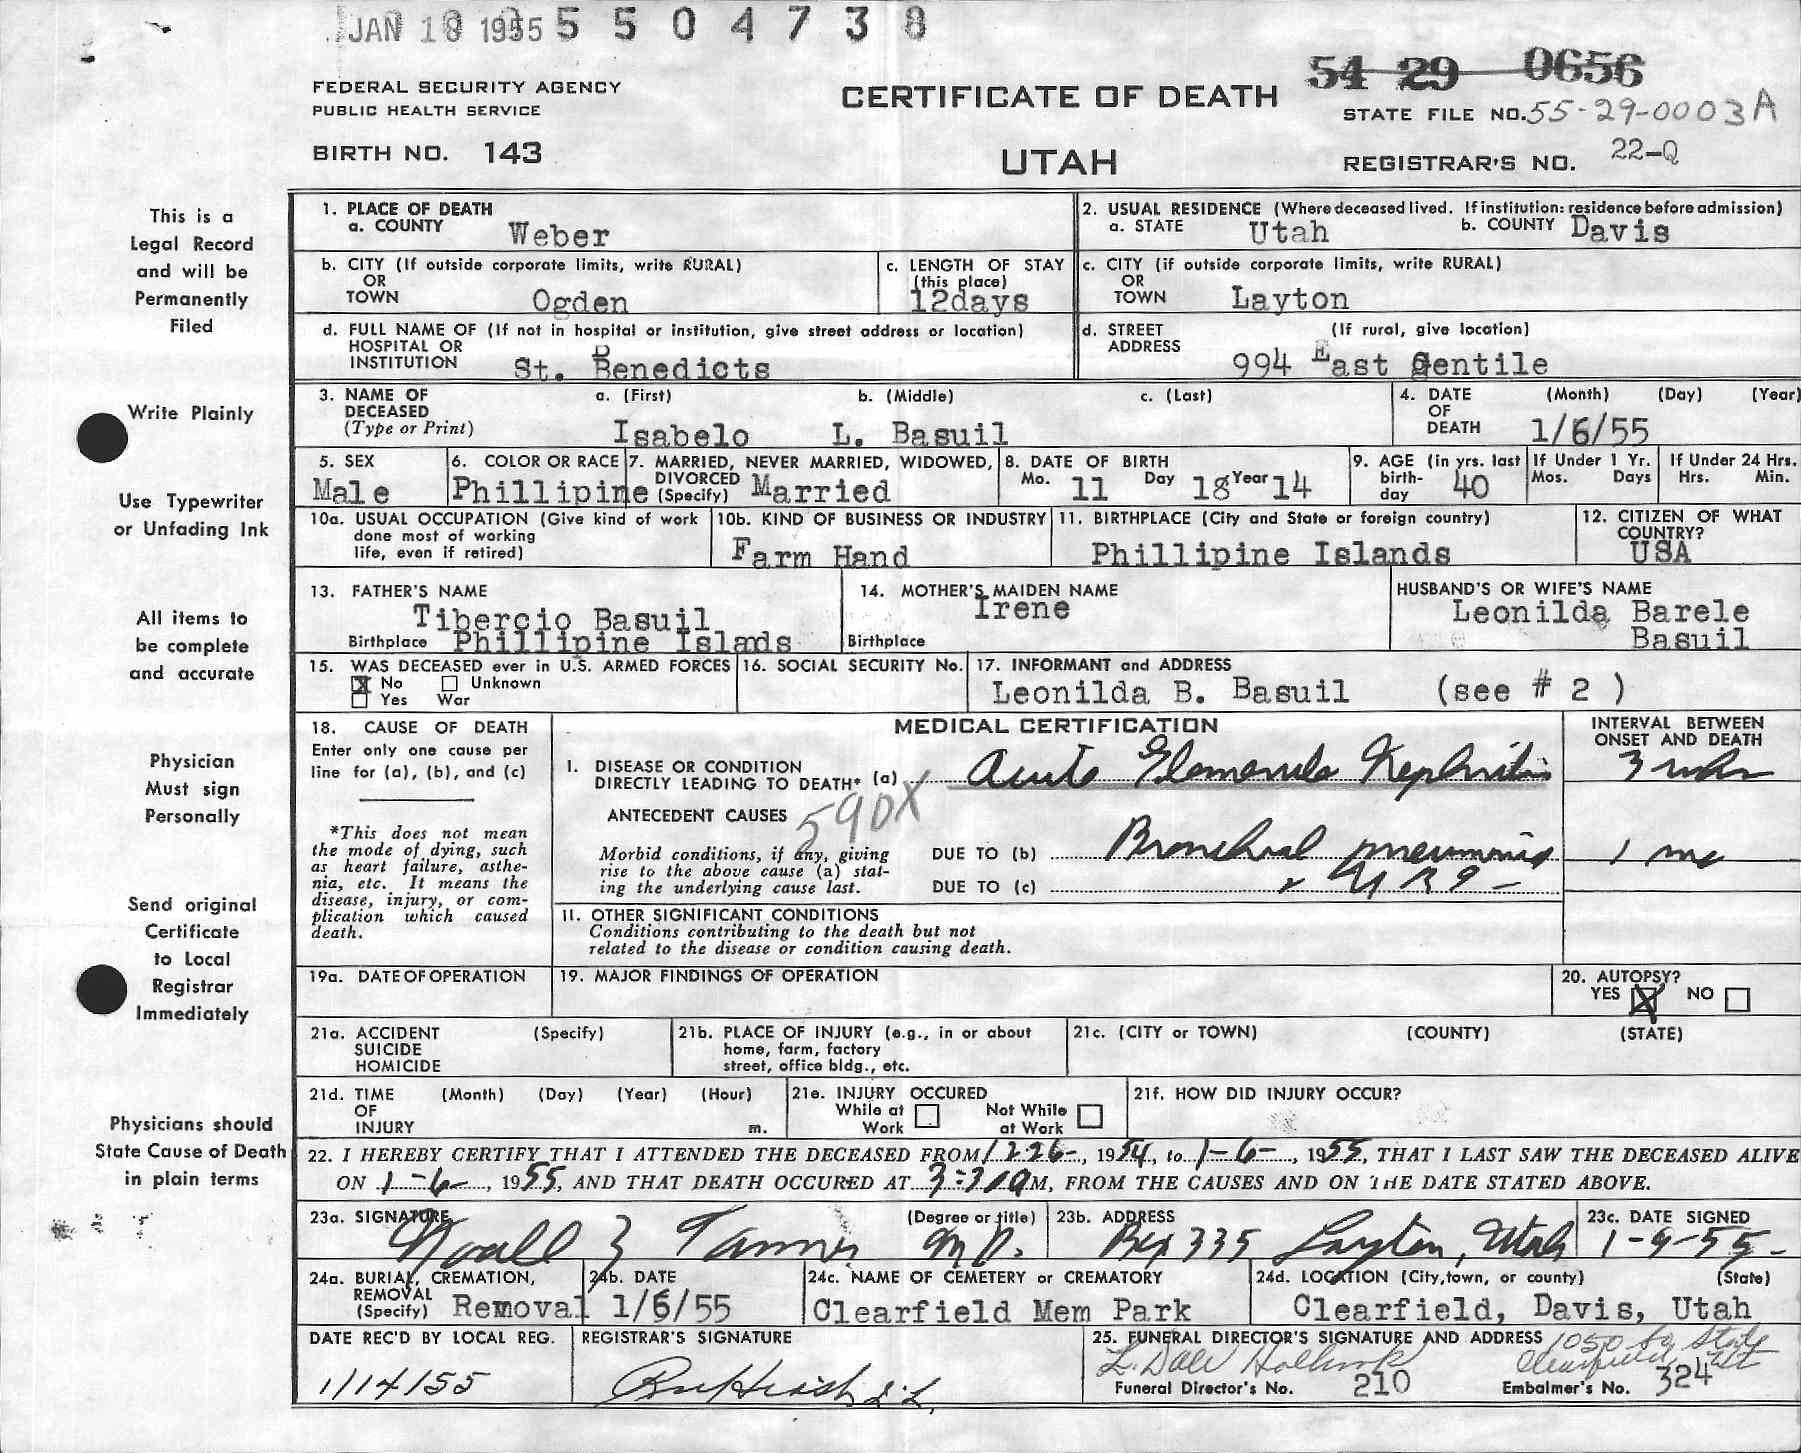 JAN 18 1955 5504738
54 29 0656
FEDERAL SECURITY AGENCY
PUBLIC HEALTH SERVICE
CERTIFICATE OF DEATH
STATE FILE NO. 55-29-0003A
BIRTH NO. 143
UTAH
REGISTRAR'S NO. 22-Q
This is a
Legal Record
and will be
Permanently
Filed
Write Plainly
Use Typewriter
or Unfading Ink
All items to
be complete
and accurate
Physician
Must sign
Personally
Send original
Certificate
to Local
Registrar
Immediately
Physicians should
State Cause of Death
in plain terms
1. PLACE OF DEATH
a. COUNTY Weber
2. USUAL RESIDENCE (Where deceased lived. If institution: residence before admission)
a. STATE Utah b. COUNTY Davis
b. CITY (If outside corporate limits, write RURAL)
OR
TOWN Ogden
c. LENGTH OF STAY
(this place)
12days
c. CITY (if outside corporate limits, write RURAL)
OR
TOWN Layton
d. FULL NAME OF (If not in hospital or institution, give street address or location)
HOSPITAL OR
INSTITUTION St. Benedicts
d. STREET (If rural, give location)
ADDRESS 994 East Gentile
3. NAME OF a. (First) b. (Middle) c. (Last)
DECEASED
(Type or Print) Isabelo L. Basuil
4. DATE (Month) (Day) (Year)
OF
DEATH 1/6/55
5. SEX
Male
6. COLOR OR RACE
Phillipine
7. MARRIED, NEVER MARRIED, WIDOWED,
DIVORCED
(Specify) Married
8. DATE OF BIRTH
Mo. 11 Day 18 Year 14
9. AGE (in yrs. last
birth-
day 40
If Under 1 Yr.
Mos. Days
If Under 24 Hrs.
Hrs. Min.
10a. USUAL OCCUPATION (Give kind of work
done most of working
life, even if retired)
10b. KIND OF BUSINESS OR INDUSTRY
Farm Hand
11. BIRTHPLACE (City and State or foreign country)
Phillipine Islands
12. CITIZEN OF WHAT
COUNTRY?
USA
13. FATHER'S NAME
Tibercio Basuil
Birthplace Phillipine Islads
14. MOTHER'S MAIDEN NAME
Irene
Birthplace
HUSBAND'S OR WIFE'S NAME
Leonilda Barele
Basuil
15. WAS DECEASED ever in U.S. ARMED FORCES
No Unknown
Yes War
16. SOCIAL SECURITY No.
17. INFORMANT and ADDRESS
Leonilda B. Basuil (see # 2 )
18. CAUSE OF DEATH
Enter only one cause per
line for (a), (b), and (c)
*This does not mean
the mode of dying, such
as heart failure, asthe-
nia, etc. It means the
disease, injury, or com-
plication which caused
death.
MEDICAL CERTIFICATION
INTERVAL BETWEEN
ONSET AND DEATH
I. DISEASE OR CONDITION
DIRECTLY LEADING TO DEATH* (a) Acute Glomerulo Nephritis 3 wks
590X
ANTECEDENT CAUSES
Morbid conditions, if any, giving
rise to the above cause (a) stat-
ing the underlying cause last.
DUE TO (b) Bronchial pneumonia 1 mo
DUE TO (c) URI
II. OTHER SIGNIFICANT CONDITIONS
Conditions contributing to the death but not
related to the disease or condition causing death.
19a. DATE OF OPERATION
19. MAJOR FINDINGS OF OPERATION
20. AUTOPSY?
YES X NO
21a. ACCIDENT (Specify)
SUICIDE
HOMICIDE
21b. PLACE OF INJURY (e.g., in or about
home, farm, factory
street, office bldg., etc.
21c. (CITY or TOWN) (COUNTY) (STATE)
21d. TIME (Month) (Day) (Year) (Hour)
OF
INJURY m.
21e. INJURY OCCURED
While at Work Not While at Work
21f. HOW DID INJURY OCCUR?
22. I HEREBY CERTIFY THAT I ATTENDED THE DECEASED FROM 12-26-, 1954, to 1-6-, 1955, THAT I LAST SAW THE DECEASED ALIVE
ON 1-6-, 1955, AND THAT DEATH OCCURED AT M, FROM THE CAUSES AND ON THE DATE STATED ABOVE.
23a. SIGNATURE (Degree or title)
Noall Z Tanner M.D.
23b. ADDRESS
Box 335 Layton, Utah
23c. DATE SIGNED
1-9-55-
24a. BURIAL, CREMATION,
REMOVAL
(Specify) Removal
24b. DATE
1/6/55
24c. NAME OF CEMETERY or CREMATORY
Clearfield Mem Park
24d. LOCATION (City, town, or county) (State)
Clearfield, Davis, Utah
DATE REC'D BY LOCAL REG.
1/14/55
REGISTRAR'S SIGNATURE
25. FUNERAL DIRECTOR'S SIGNATURE AND ADDRESS 1050 So State
L. Dale Holbrook Clearfield, Ut
Funeral Director's No. 210 Embalmer's No. 324